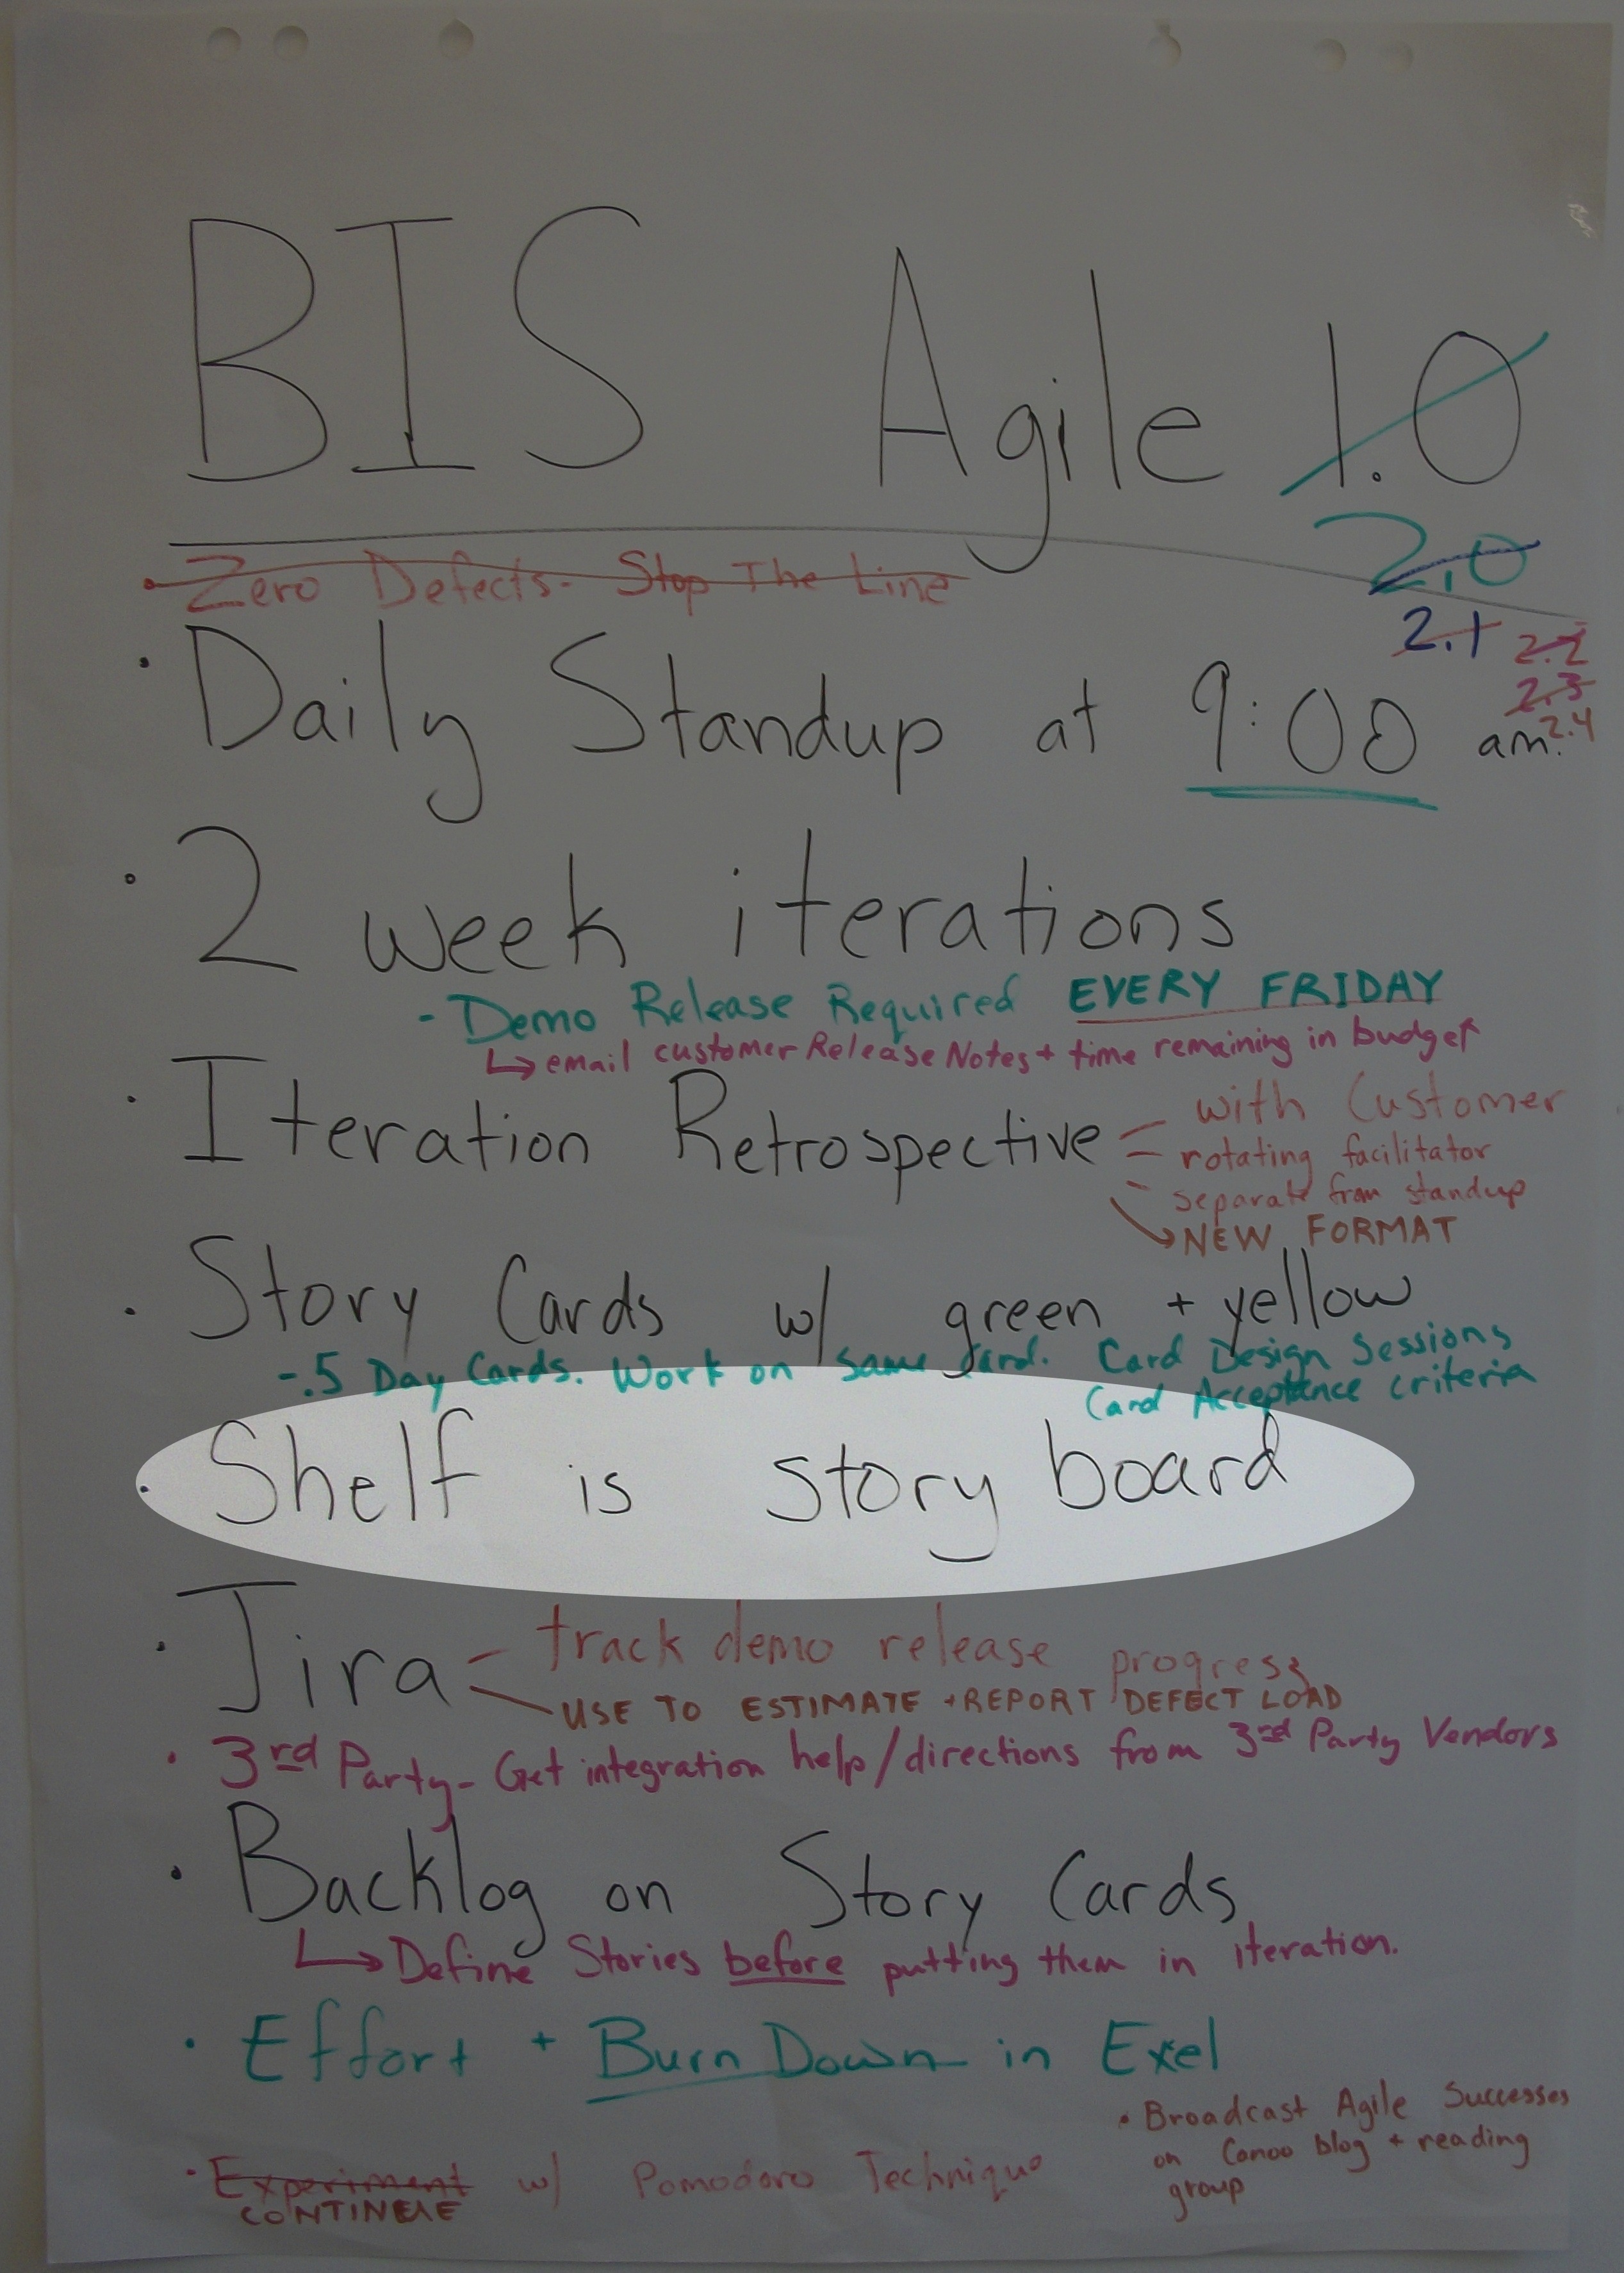 BIS Agile 1.0
2.0
• Zero Defects- Stop The Line
2.1 2.2
2.3
2.4
• Daily Standup at 9:00 am.
• 2 week iterations
- Demo Release Required EVERY FRIDAY
↳ email customer Release Notes + time remaining in budget
• Iteration Retrospective - with Customer
- rotating facilitator
- separate from standup
↘ NEW FORMAT
• Story Cards w/ green + yellow
-.5 Day Cards. Work on same card. Card Design Sessions
Card Acceptance criteria
• Shelf is story board
• Jira - track demo release progress
USE TO ESTIMATE + REPORT DEFECT LOAD
• 3rd Party- Get integration help/directions from 3rd Party Vendors
• Backlog on Story Cards
↳ Define Stories before putting them in iteration.
• Effort + Burn Down in Exel
• Broadcast Agile Successes
on Canoo blog + reading
group
• Experiment w/ Pomodoro Technique
CONTINUE